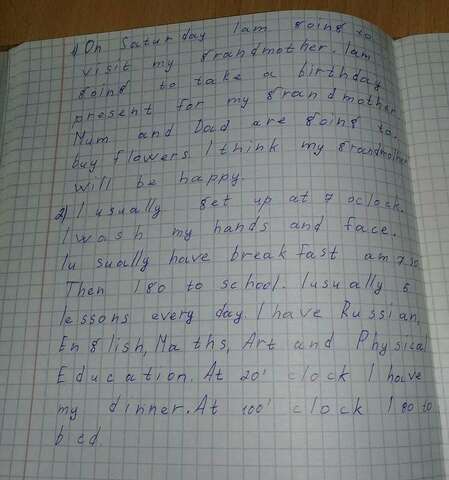 1) On Saturday I am going to
visit my grandmother. I am
going to take a birthday
present for my grandmother
Mum and Dad are going to
buy flowers I think my grandmother
will be happy.
2) I usually get up at 7 oclock.
I wash my hands and face.
Iu sually have breakfast am 7.30
Then I go to school. Iusually 5
lessons every day. I have Russian,
English, Maths, Art and Physical
Education. At 20' clock I have
my dinner. At 100' clock I go to
bed.